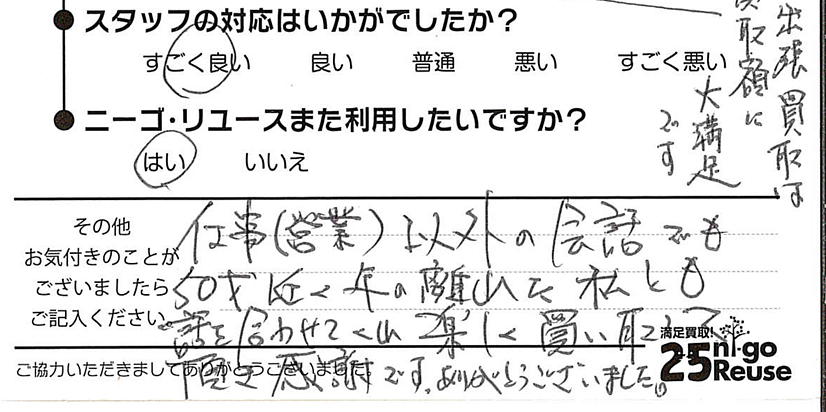 スタッフの対応はいかがでしたか?
すごく良い 良い 普通 悪い すごく悪い
ニーゴ・リユースまた利用したいですか?
はい いいえ
出張買取は
買取額に
大満足
です
その他
お気付きのことが
ございましたら
ご記入ください。
仕事(営業)以外の会話でも
50才近く年の離れた私とも
話を合わせてくれ楽しく買い取って
頂き感謝です。ありがとうございました。
満足買取!
25 ni-go
Reuse
ご協力いただきましてありがとうございました。